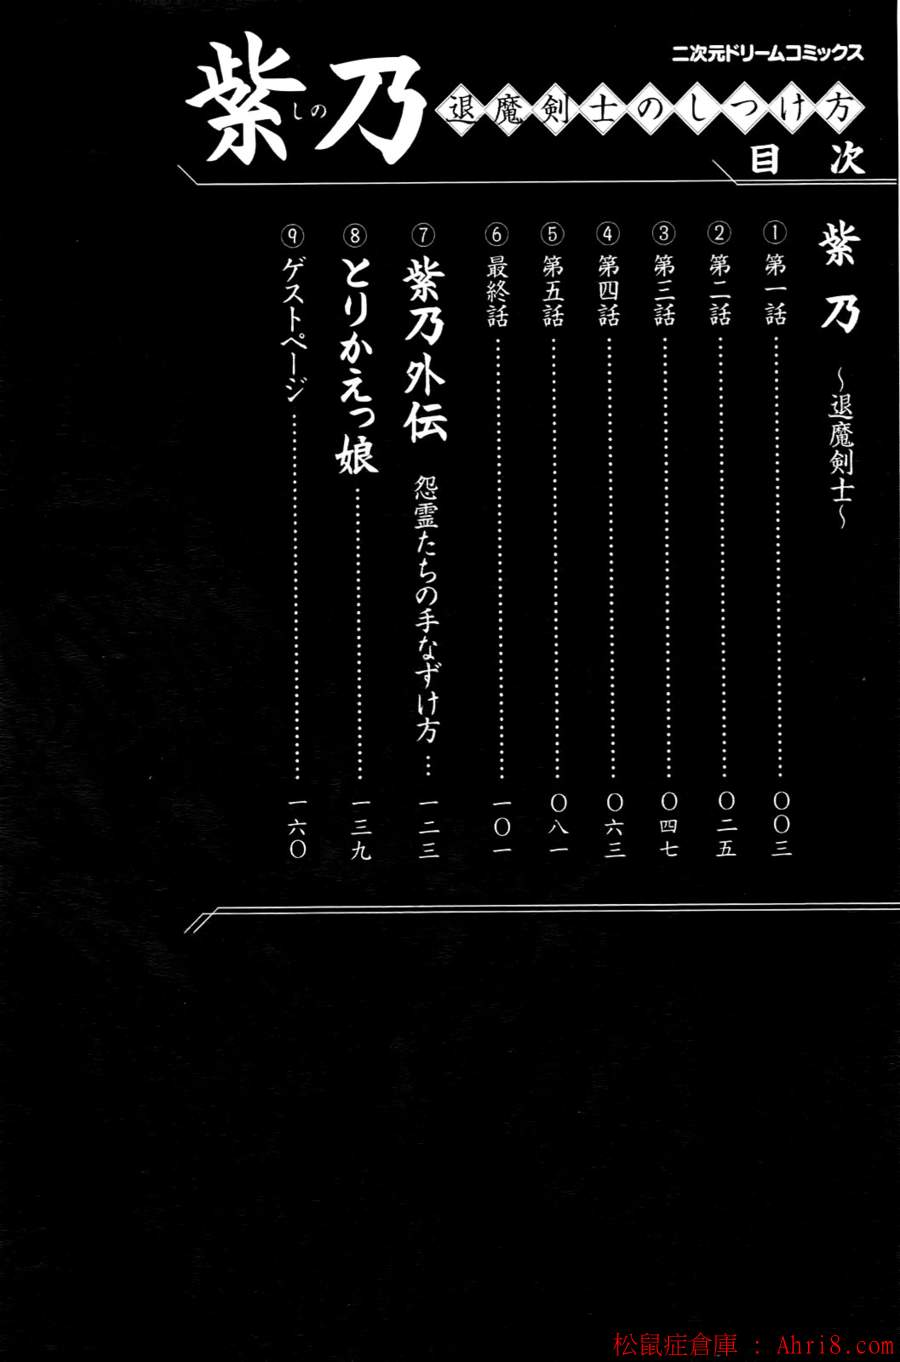 二次元ドリームコミックス
紫乃
しの
退魔剣士のしつけ方
目次
紫乃 〜退魔剣士〜
① 第一話……〇〇三
② 第二話……〇二五
③ 第三話……〇四七
④ 第四話……〇六三
⑤ 第五話……〇八一
⑥ 最終話……一〇一
⑦ 紫乃外伝 怨霊たちの手なずけ方…一二三
⑧ とりかえっ娘……一三九
⑨ ゲストページ……一六〇
松鼠症倉庫 : Ahri8.com